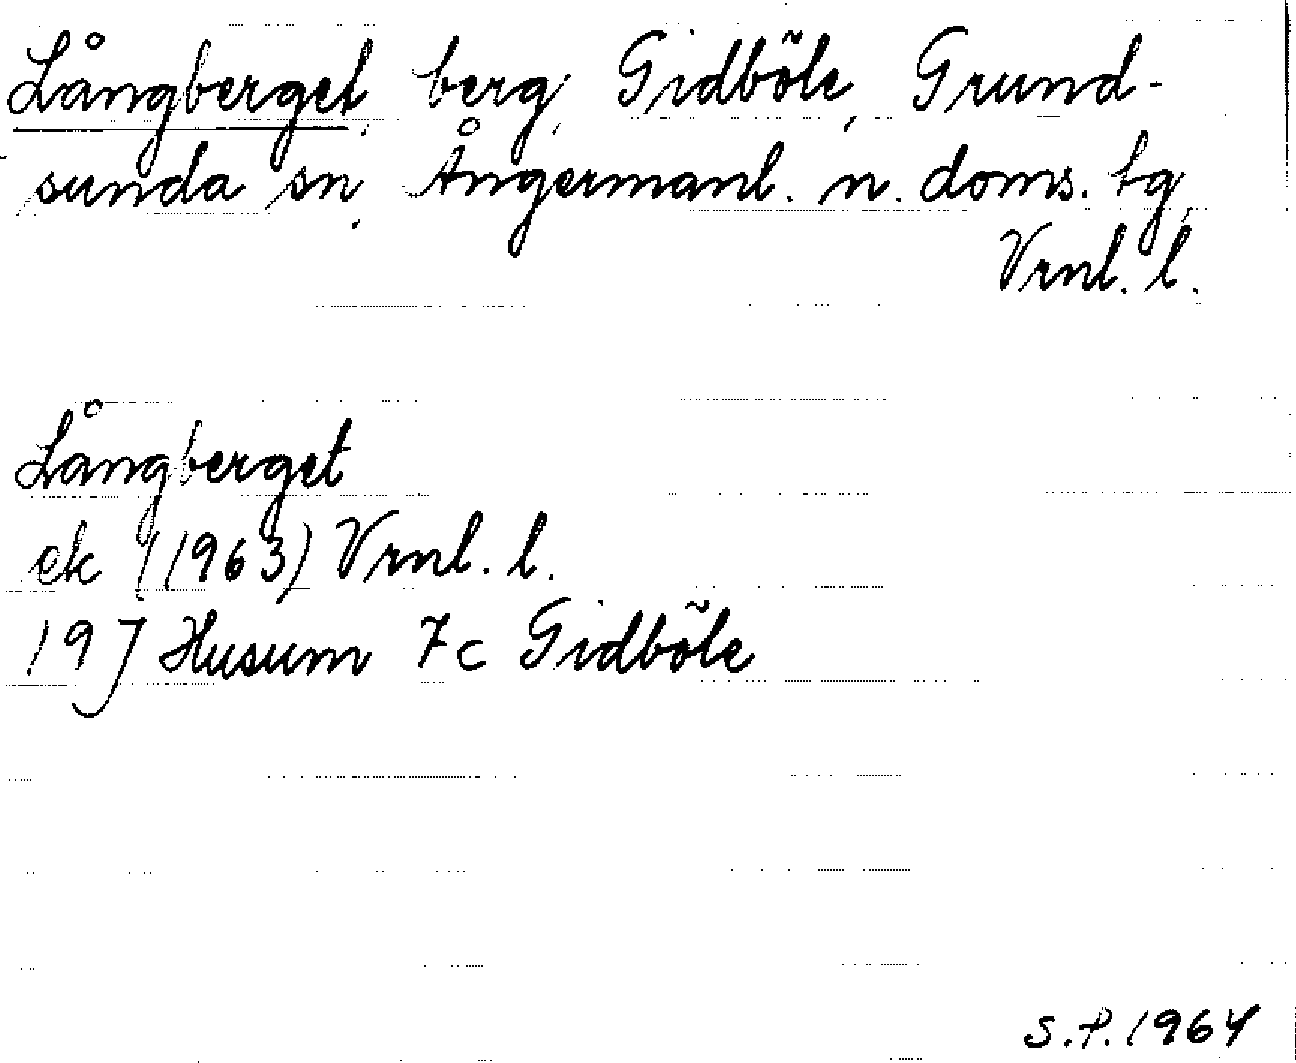 Långberget, berg, Gidböle, Grund-
sunda sn, Ångermanl. n. doms. tg,
Vrnl. l.
Långberget
ek (1963) Vrnl. l.
19J Husum 7c Gidböle
S.P. 1964